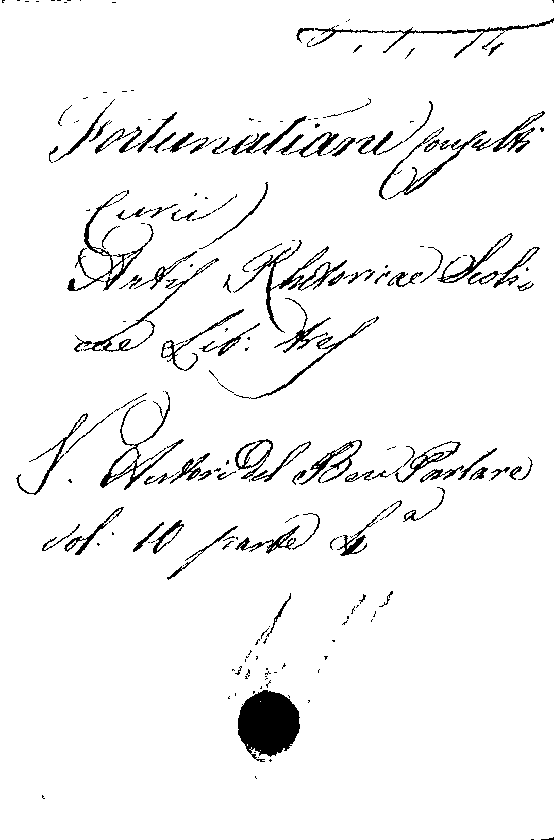 Fortunatiani Consulti
Curii
Artis Rhetoricae Scoli
cae Lib: tres
V. Autori Del Ben Parlare
vol: 10 parte 4ª